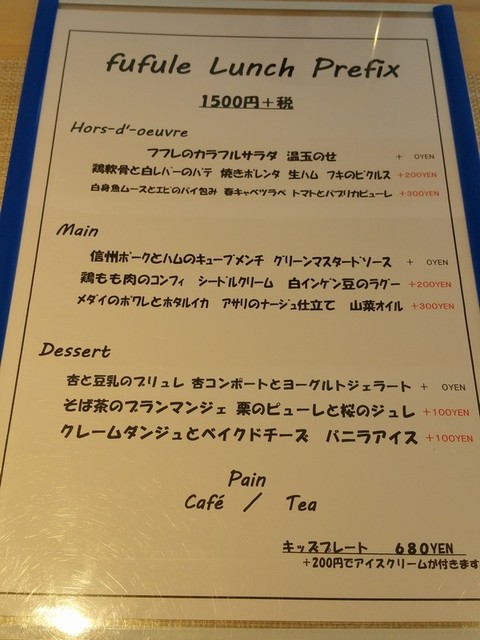 fufule Lunch Prefix
1500円＋税
Hors-d'-oeuvre
フフレのカラフルサラダ 温玉のせ + 0YEN
鶏軟骨と白レバーのパテ 焼きポレンタ 生ハム フキのピクルス +200YEN
白身魚ムースとエビのパイ包み 春キャベツラペ トマトとパプリカピューレ +300YEN
Main
信州ポークとハムのキューブメンチ グリーンマスタードソース + 0YEN
鶏もも肉のコンフィ シードルクリーム 白インゲン豆のラグー +200YEN
メダイのポワレとホタルイカ アサリのナージュ仕立て 山菜オイル +300YEN
Dessert
杏と豆乳のブリュレ 杏コンポートとヨーグルトジェラート + 0YEN
そば茶のブランマンジェ 栗のピューレと桜のジュレ +100YEN
クレームダンジュとベイクドチーズ バニラアイス +100YEN
Pain
Café / Tea
キッズプレート 680YEN
+200円でアイスクリームが付きます